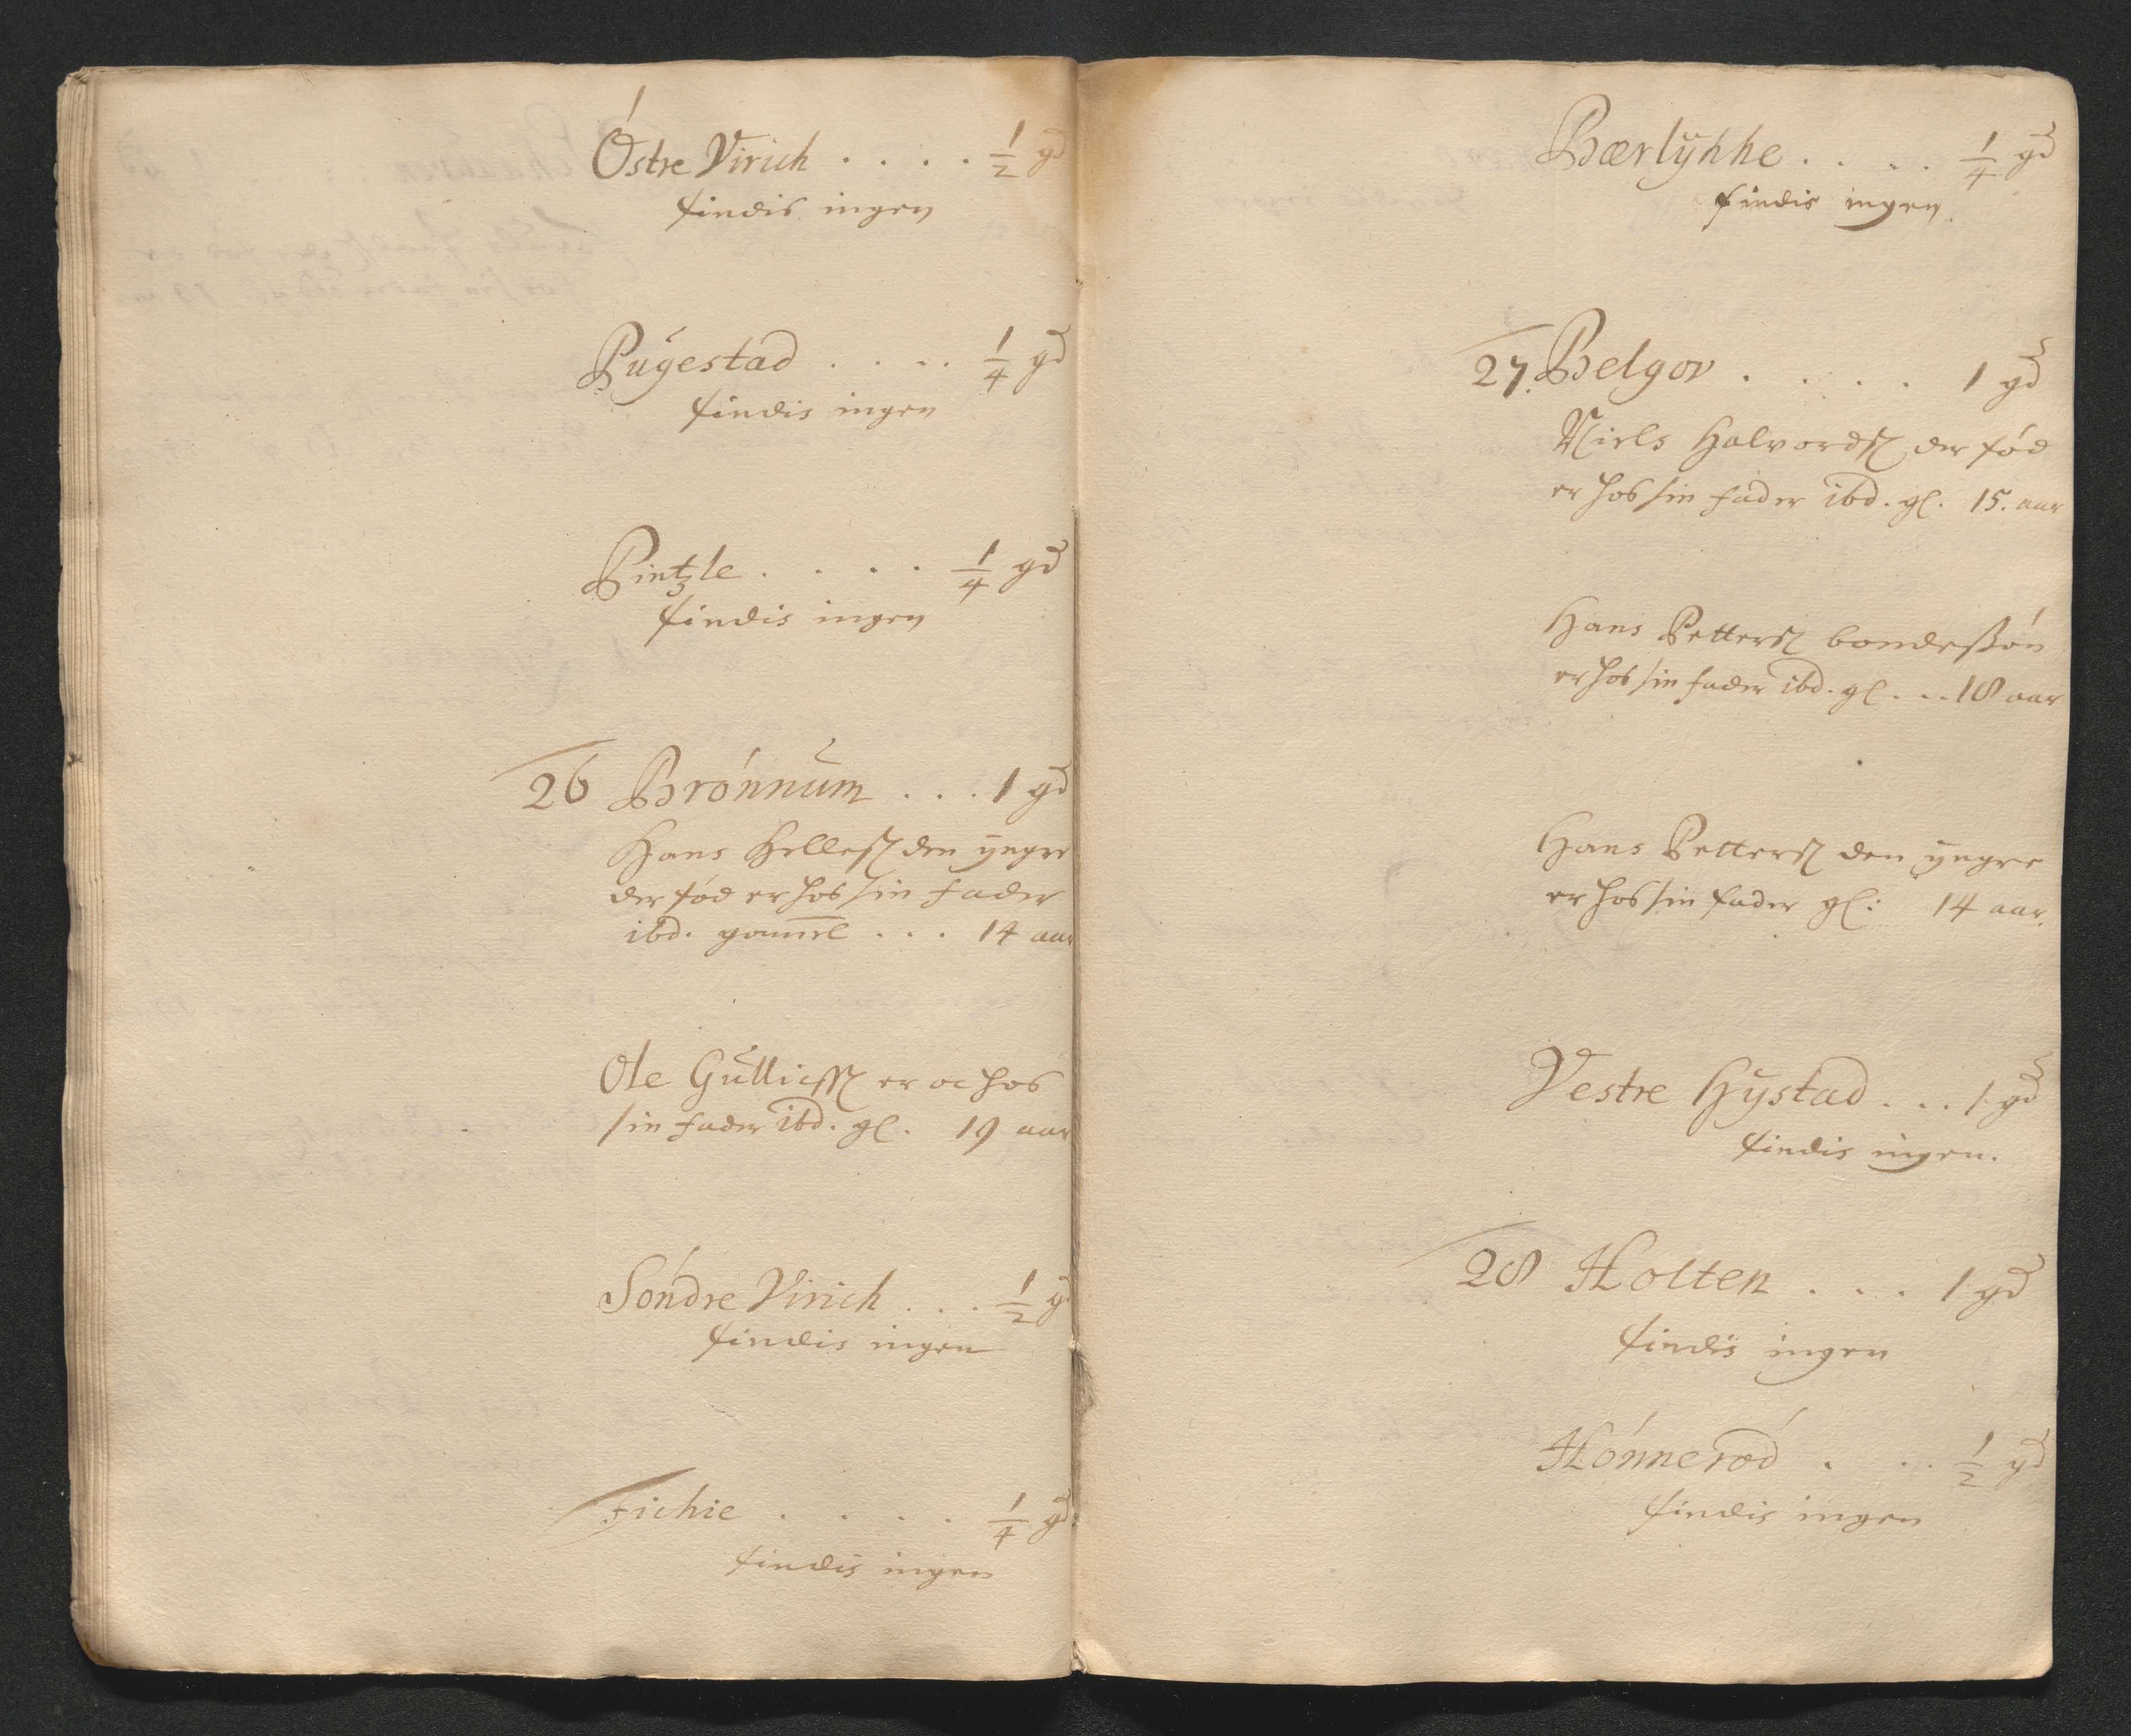 Óstre Virich . . . . 1/2 gd
findis ingen
Rugestad . . . . 1/4 gd
findis ingen
Pintzle . . . . 1/4 gd
findis ingen
26 Brónnum . . . 1 gd
Hans Hellesß den yngre
der fód er hos sin fader
ibd. gammel . . . 14 aar
Ole Gullicsß er oc hos
sin fader ibd. gl. 19 aar
Sóndre Virich . . . 1/2 gd
findis ingen
Fichie . . . . 1/4 gd
findis ingen
Bærlykke . . . . 1/4 gd
findis ingen.
27. Belgov . . . . 1 gd
Niels Halvordß der fód
er hos sin fader ibd. gl. 15. aar
Hans Petterß bondesßón
er hos sin fader ibd. gl. . . . 18 aar
Hans Petterß den yngre
er hos sin fader gl: 14 aar.
Vestre Hystad . . . 1 gd
findis ingen.
28 Holten . . . 1 gd
findis ingen
Hónneród . . . 1/2 gd
findis ingen